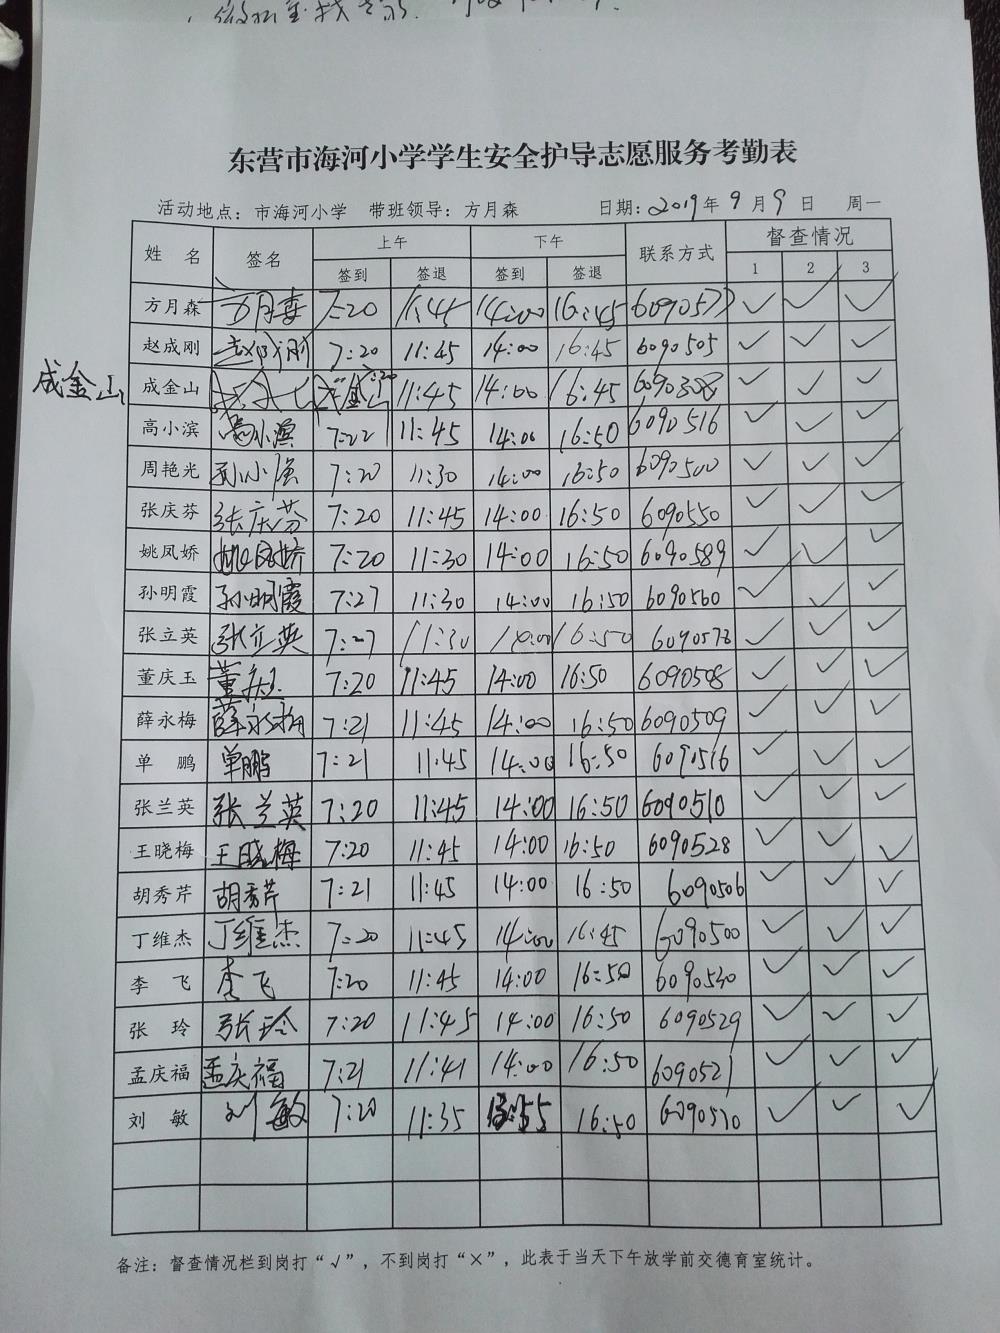 东营市海河小学学生安全护导志愿服务考勤表
活动地点：市海河小学 带班领导：方月森 日期：2019年9月9日 周一
姓 名 签名 上午 下午 联系方式 督查情况
签到 签退 签到 签退 1 2 3
方月森 方月森 7:20 11:45 14:00 16:45 6090577 ✓ ✓ ✓
赵成刚 赵成刚 7:20 11:45 14:00 16:45 6090505 ✓ ✓ ✓
成金山 成金山 成金山 7:20 11:45 14:00 16:45 6090308 ✓ ✓ ✓
高小滨 高小滨 7:22 11:45 14:00 16:50 6090516 ✓ ✓ ✓
周艳光 孙小强 7:20 11:30 14:00 16:50 6090500 ✓ ✓ ✓
张庆芬 张庆芬 7:20 11:45 14:00 16:50 6090550 ✓ ✓ ✓
姚凤娇 姚凤娇 7:20 11:30 14:00 16:50 6090589 ✓ ✓ ✓
孙明霞 孙明霞 7:27 11:30 14:00 16:50 6090560 ✓ ✓ ✓
张立英 张立英 7:27 11:30 14:00 16:50 6090578 ✓ ✓ ✓
董庆玉 董庆玉 7:20 11:45 14:00 16:50 6090508 ✓ ✓ ✓
薛永梅 薛永梅 7:21 11:45 14:00 16:50 6090509 ✓ ✓ ✓
单 鹏 单鹏 7:21 11:45 14:00 16:50 6090516 ✓ ✓ ✓
张兰英 张兰英 7:20 11:45 14:00 16:50 6090510 ✓ ✓ ✓
王晓梅 王晓梅 7:20 11:45 14:00 16:50 6090528 ✓ ✓ ✓
胡秀芹 胡秀芹 7:21 11:45 14:00 16:50 6090506 ✓ ✓ ✓
丁维杰 丁维杰 7:20 11:45 14:00 16:45 6090500 ✓ ✓ ✓
李 飞 李飞 7:20 11:45 14:00 16:50 6090530 ✓ ✓ ✓
张 玲 张玲 7:20 11:45 14:00 16:50 6090529 ✓ ✓ ✓
孟庆福 孟庆福 7:21 11:41 14:00 16:50 6090521 ✓ ✓ ✓
刘 敏 刘敏 7:20 11:35 :55 16:50 6090570 ✓ ✓ ✓
备注：督查情况栏到岗打“√”，不到岗打“×”，此表于当天下午放学前交德育室统计。